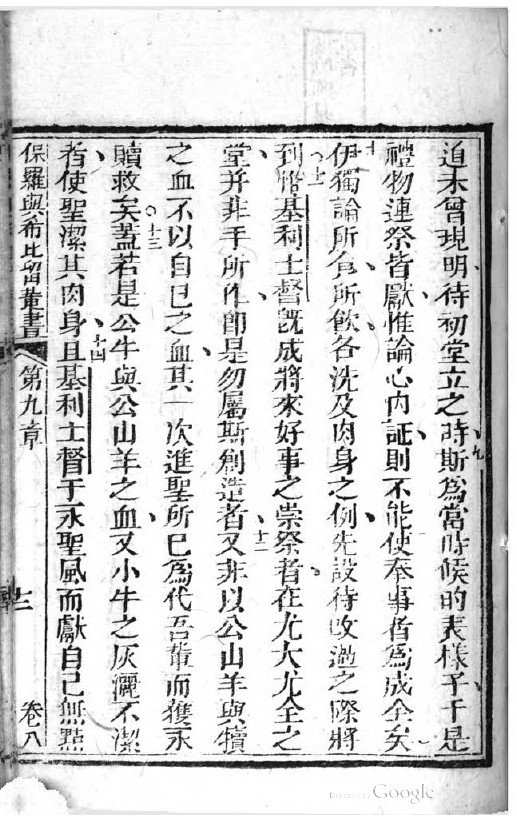 道未曾現明待初堂立之時九斯為當時候的表樣予于是
禮物連祭皆獻惟論心內証則不能使奉事者為成全矣
十伊獨論所食所飲各洗及肉身之例先設待改過之際將
到十一惟基利士督既成將來好事之崇祭者在尤大尤全之
堂并非手所作即是勿屬斯創造者十二又非以公山羊與犢
之血不以自己之血其一次進聖所已為代吾輩而獲永
贖救矣十三蓋若是公牛與公山羊之血又小牛之灰灑不潔
者使聖潔其肉身十四且基利士督于永聖風而獻自己無點
保羅與希比留輩書 第九章 十二 卷八
Google